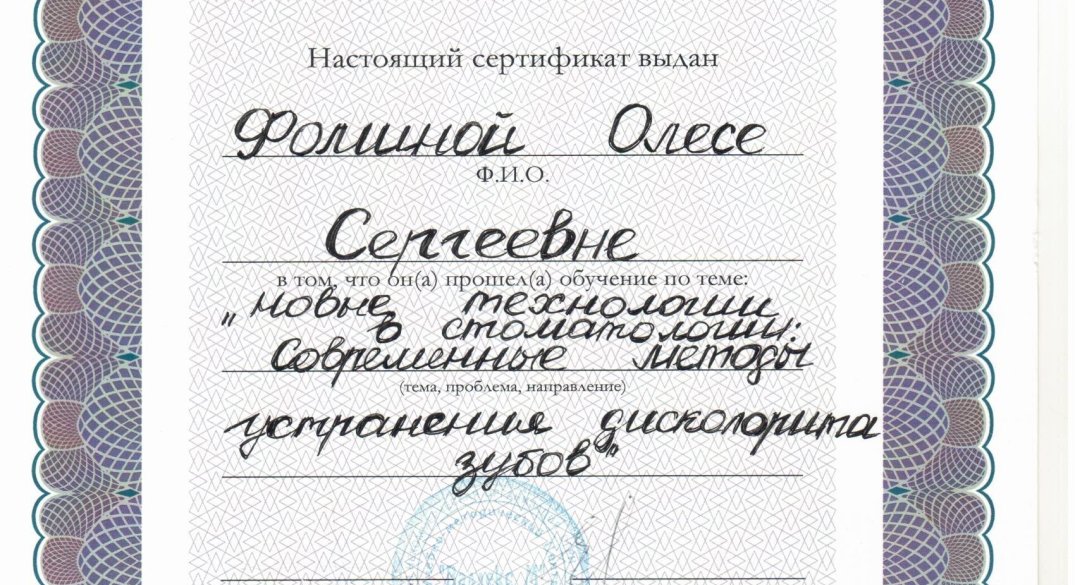 Настоящий сертификат выдан
Фоминой Олесе
Ф.И.О.
Сергеевне
в том, что он(а) прошел(а) обучение по теме:
„Новые технологии
в стоматологии:
Современные методы
(тема, проблема, направление)
устранения дисколорита
зубов"